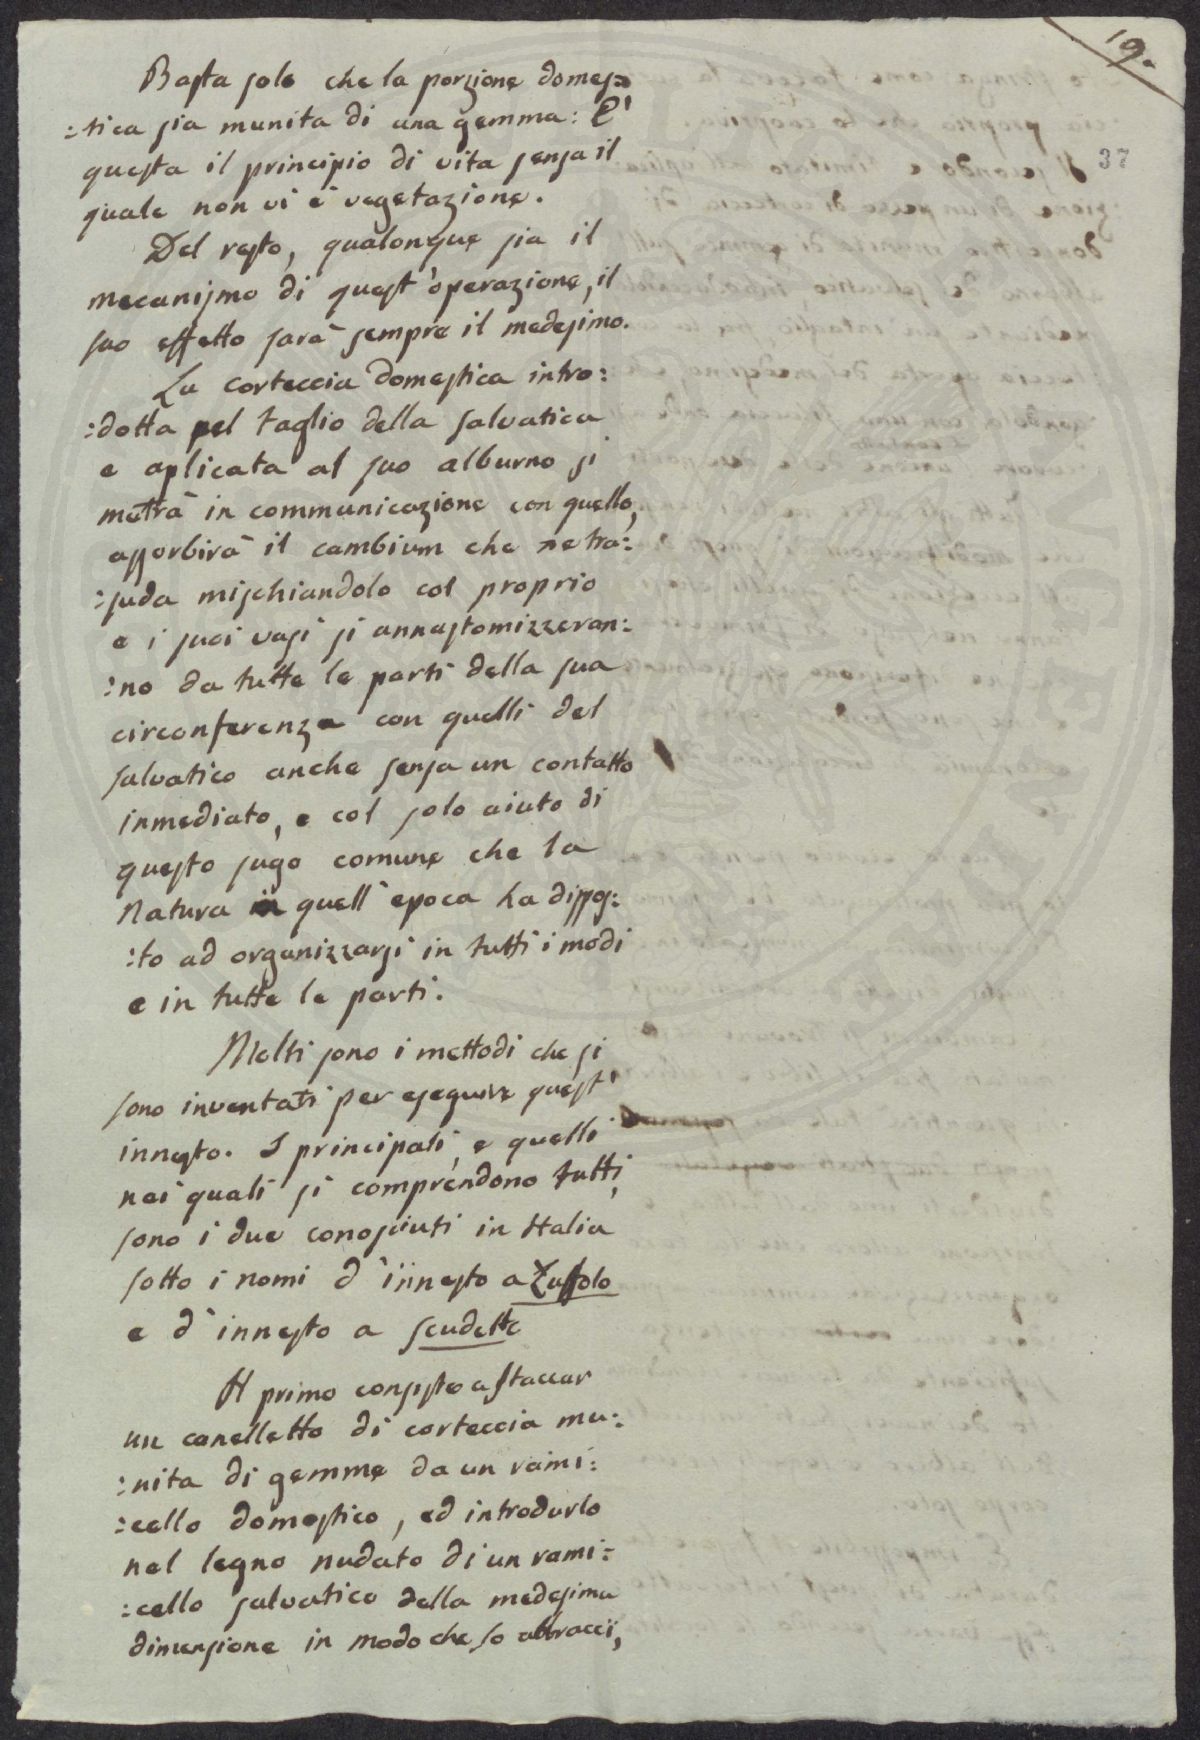 19.
37
Basta solo che la porzione domes:
:tica sia munita di una gemma: E'
questa il principio di vita senza il
quale non vi è vegetazione.
Del resto, qualonque sia il
mecanismo di quest'operazione, il
suo effetto sarà sempre il medesimo.
La corteccia domestica intro:
:dotta pel taglio della salvatica
e aplicata al suo alburno si
metrà in communicazione con quello,
assorbirà il cambium che ne tra:
:suda mischiandolo col proprio
e i suoi vasi si annastomizzeran:
:no da tutte le parti della sua
circonferenza con quelli del
salvatico anche senza un contatto
inmediato, e col solo aiuto di
questo sugo comune che la
Natura in quell'epoca ha dispos:
:to ad organizzarsi in tutti i modi
e in tutte le parti.
Molti sono i mettodi che si
sono inventati per eseguire quest'
innesto. I principali, e quelli
nei quali si comprendono tutti,
sono i due conosciuti in Italia
sotto i nomi d'innesto a Zuffolo
e d'innesto a scudetto
Il primo consiste a staccar
un canelletto di corteccia mu:
:nita di gemme da un rami:
:cello domestico, ed introdurlo
nel legno nudato di un rami:
:cello salvatico della medesima
dimensione in modo che lo abbracci,